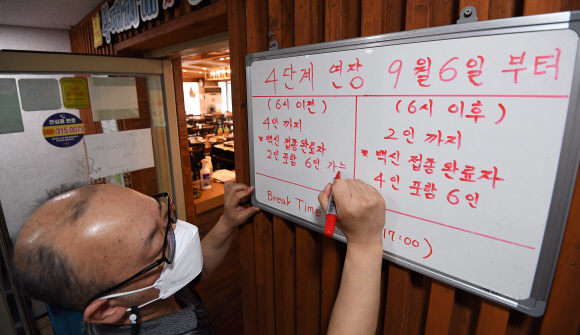 4단계 연장 9월6일 부터
(6시 이전)
4인 까지
* 백신 접종완료자
2인 포함 6인 가느
(6시 이후)
2인 까지
* 백신 접종 완료자
4인 포함 6인
Break Time
17:00)